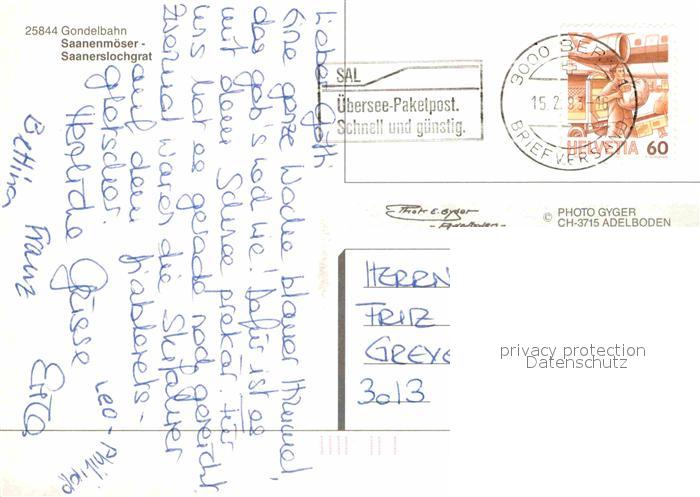 25844 Gondelbahn
Saanenmöser -
Saanerslochgrat
Lieber Götti
Eine ganze Woche blauer Himmel,
das gab's noch nie! Dafür ist es
mit dem Schnee prekär. Für
uns hat es gerade noch gereicht.
Zweimal waren die Skifahrer
auf dem Diablerets-
gletscher.
Herzliche Grüsse
Bettina Franz Leo-Philipp
SAL
Übersee-Paketpost.
Schnell und günstig.
3000 BERN
15.2.93-16
BRIEFVERSAND
HELVETIA 60
Photo E. Gyger
- Adelboden -
© PHOTO GYGER
CH-3715 ADELBODEN
HERRN
FRITZ
GREYE
3013
privacy protection
Datenschutz